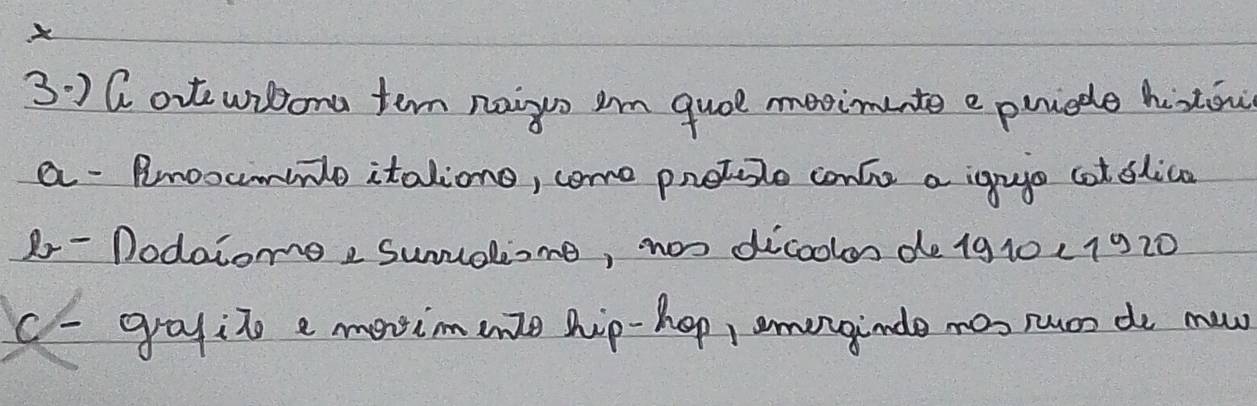 3.) A arte urbana tem raízes em qual movimento e período históric
a - Renascimento italiano, como protesto contra a igreja católica
b - Dadaísmo e Surrealismo, nas décadas de 1910 e 1920
c - grafite e movimento hip-hop, emergindo nas ruas de new